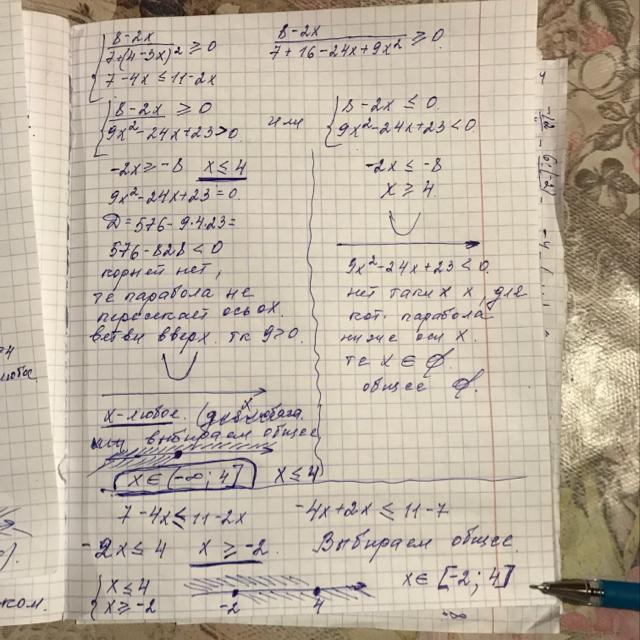 { (8-2x)/(7+(4-3x)²) ≥ 0    (8-2x)/(7+16-24x+9x²) ≥ 0
7-4x ≤ 11-2x
{ 8-2x ≥ 0
9x²-24x+23>0
или
{ 8-2x ≤ 0
9x²-24x+23<0
-2x ≥ -8    x ≤ 4
9x²-24x+23=0.
Д=576-9·4·23=
576-828<0
корней нет,
те парабола не
пересекает ось ох.
ветви вверх. тк 9>0.
x
x-любое.
выбираем общее
x∈(-∞; 4]    x≤4
-2x ≤ -8
x ≥ 4.
9x²-24x+23<0.
нет таких x, для
кот. парабола
ниже оси x.
те x ∈ ∅.
общее ∅.
7-4x ≤ 11-2x    -4x+2x ≤ 11-7
-2x ≤ 4    x ≥ -2.    Выбираем общее
{ x≤4
x≥-2
-2    4
x∈[-2; 4]